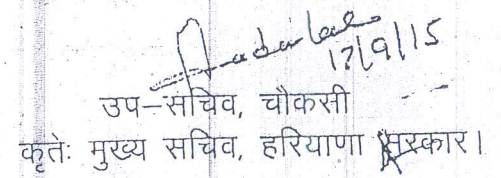 17/9/15
उप-सचिव, चौकसी
कृतेः मुख्य सचिव, हरियाणा सरकार।